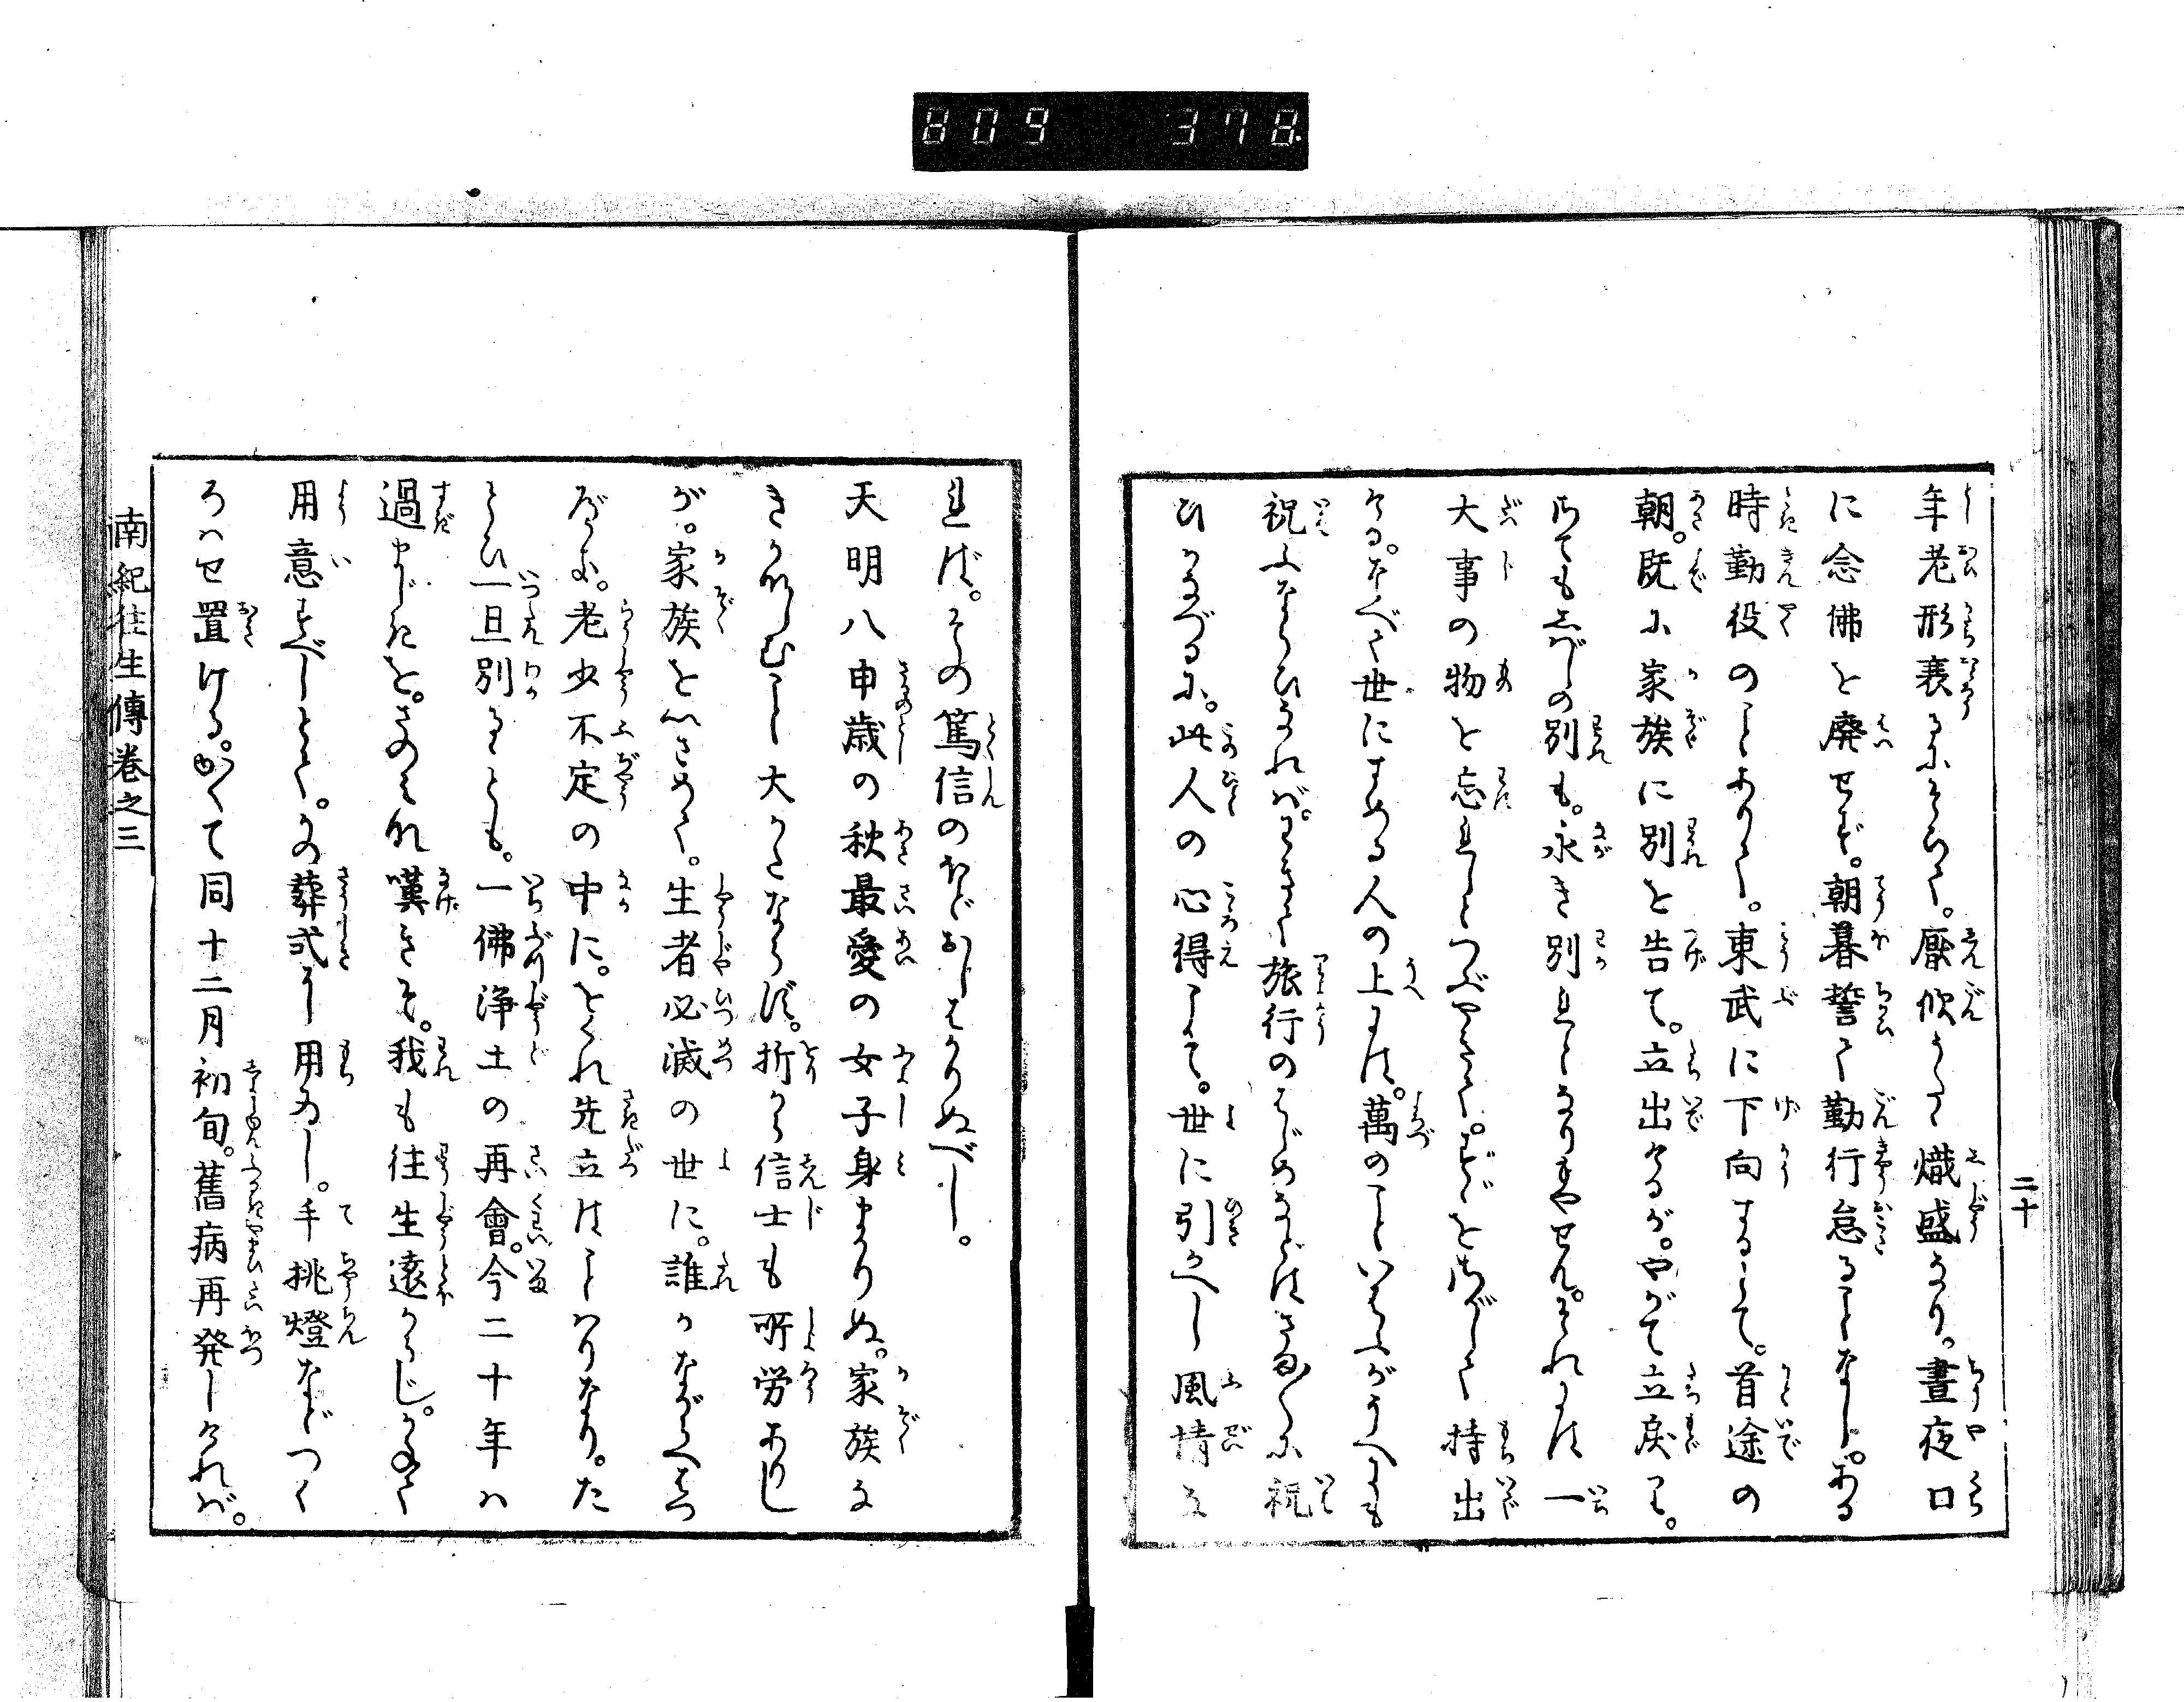 809 378
二十
年老形衰るにそひて。厭欣うたゝ熾盛なり。晝夜口
に念佛を廃せず。朝暮誓て勤行怠ることなし。ある
時勤役のことありて。東武に下向するとて。首途の
朝。既に家族に別を告て。立出けるが。やがて立戻りて。
さても志ばしの別も。永き別れとなりもやせん。それには一
大事の物を忘れしとつぶやきて。ずゞを出して持出
ける。なべて世にすめる人の上には。萬のこといはふがうへにも
祝ふならひなれば。わきて旅行のはじめなどはさま〴〵に祝
ひかなづるに。此人の心得にて。世に引かへし風情な
れば。その篤信のほどおしはかりぬべし。
天明八申歳の秋最愛の女子身まかりぬ。家族な
きかなしむこと大かたならず。折から信士も所労ありし
が。家族をいさめて。生者必滅の世に。誰かながらへはつ
べきぞ。老少不定の中に。をくれ先立はことはりなり。た
とひ一旦別るとも。一佛浄土の再會。今二十年ハ
過まじきを。さのみな嘆きそ。我も往生遠からじ。かねて
用意すべしとて。かの葬式に用ゐし。手挑燈などつく
ろハせ置ける。かくて同十二月初旬。舊病再発しければ。
南紀往生傳巻之三